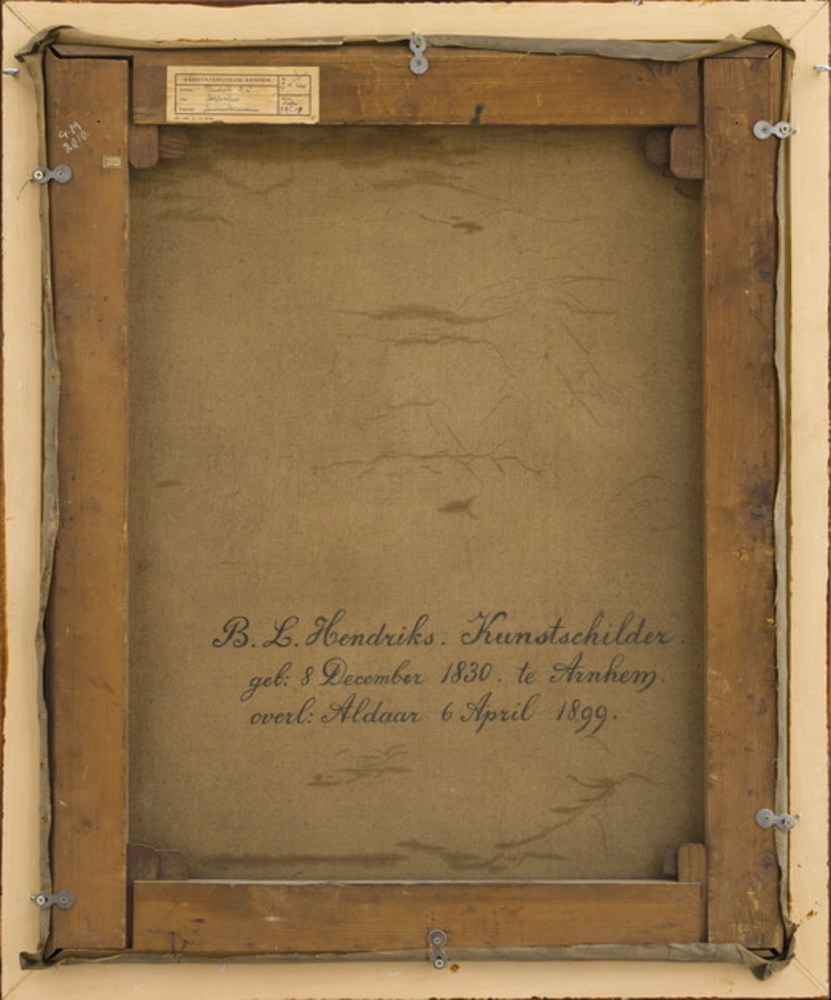 GEMEENTEMUSEUM ARNHEM
G.M.
2010.
B. L. Hendriks. Kunstschilder.
geb: 8 December 1830. te Arnhem.
overl: Aldaar 6 April 1899.